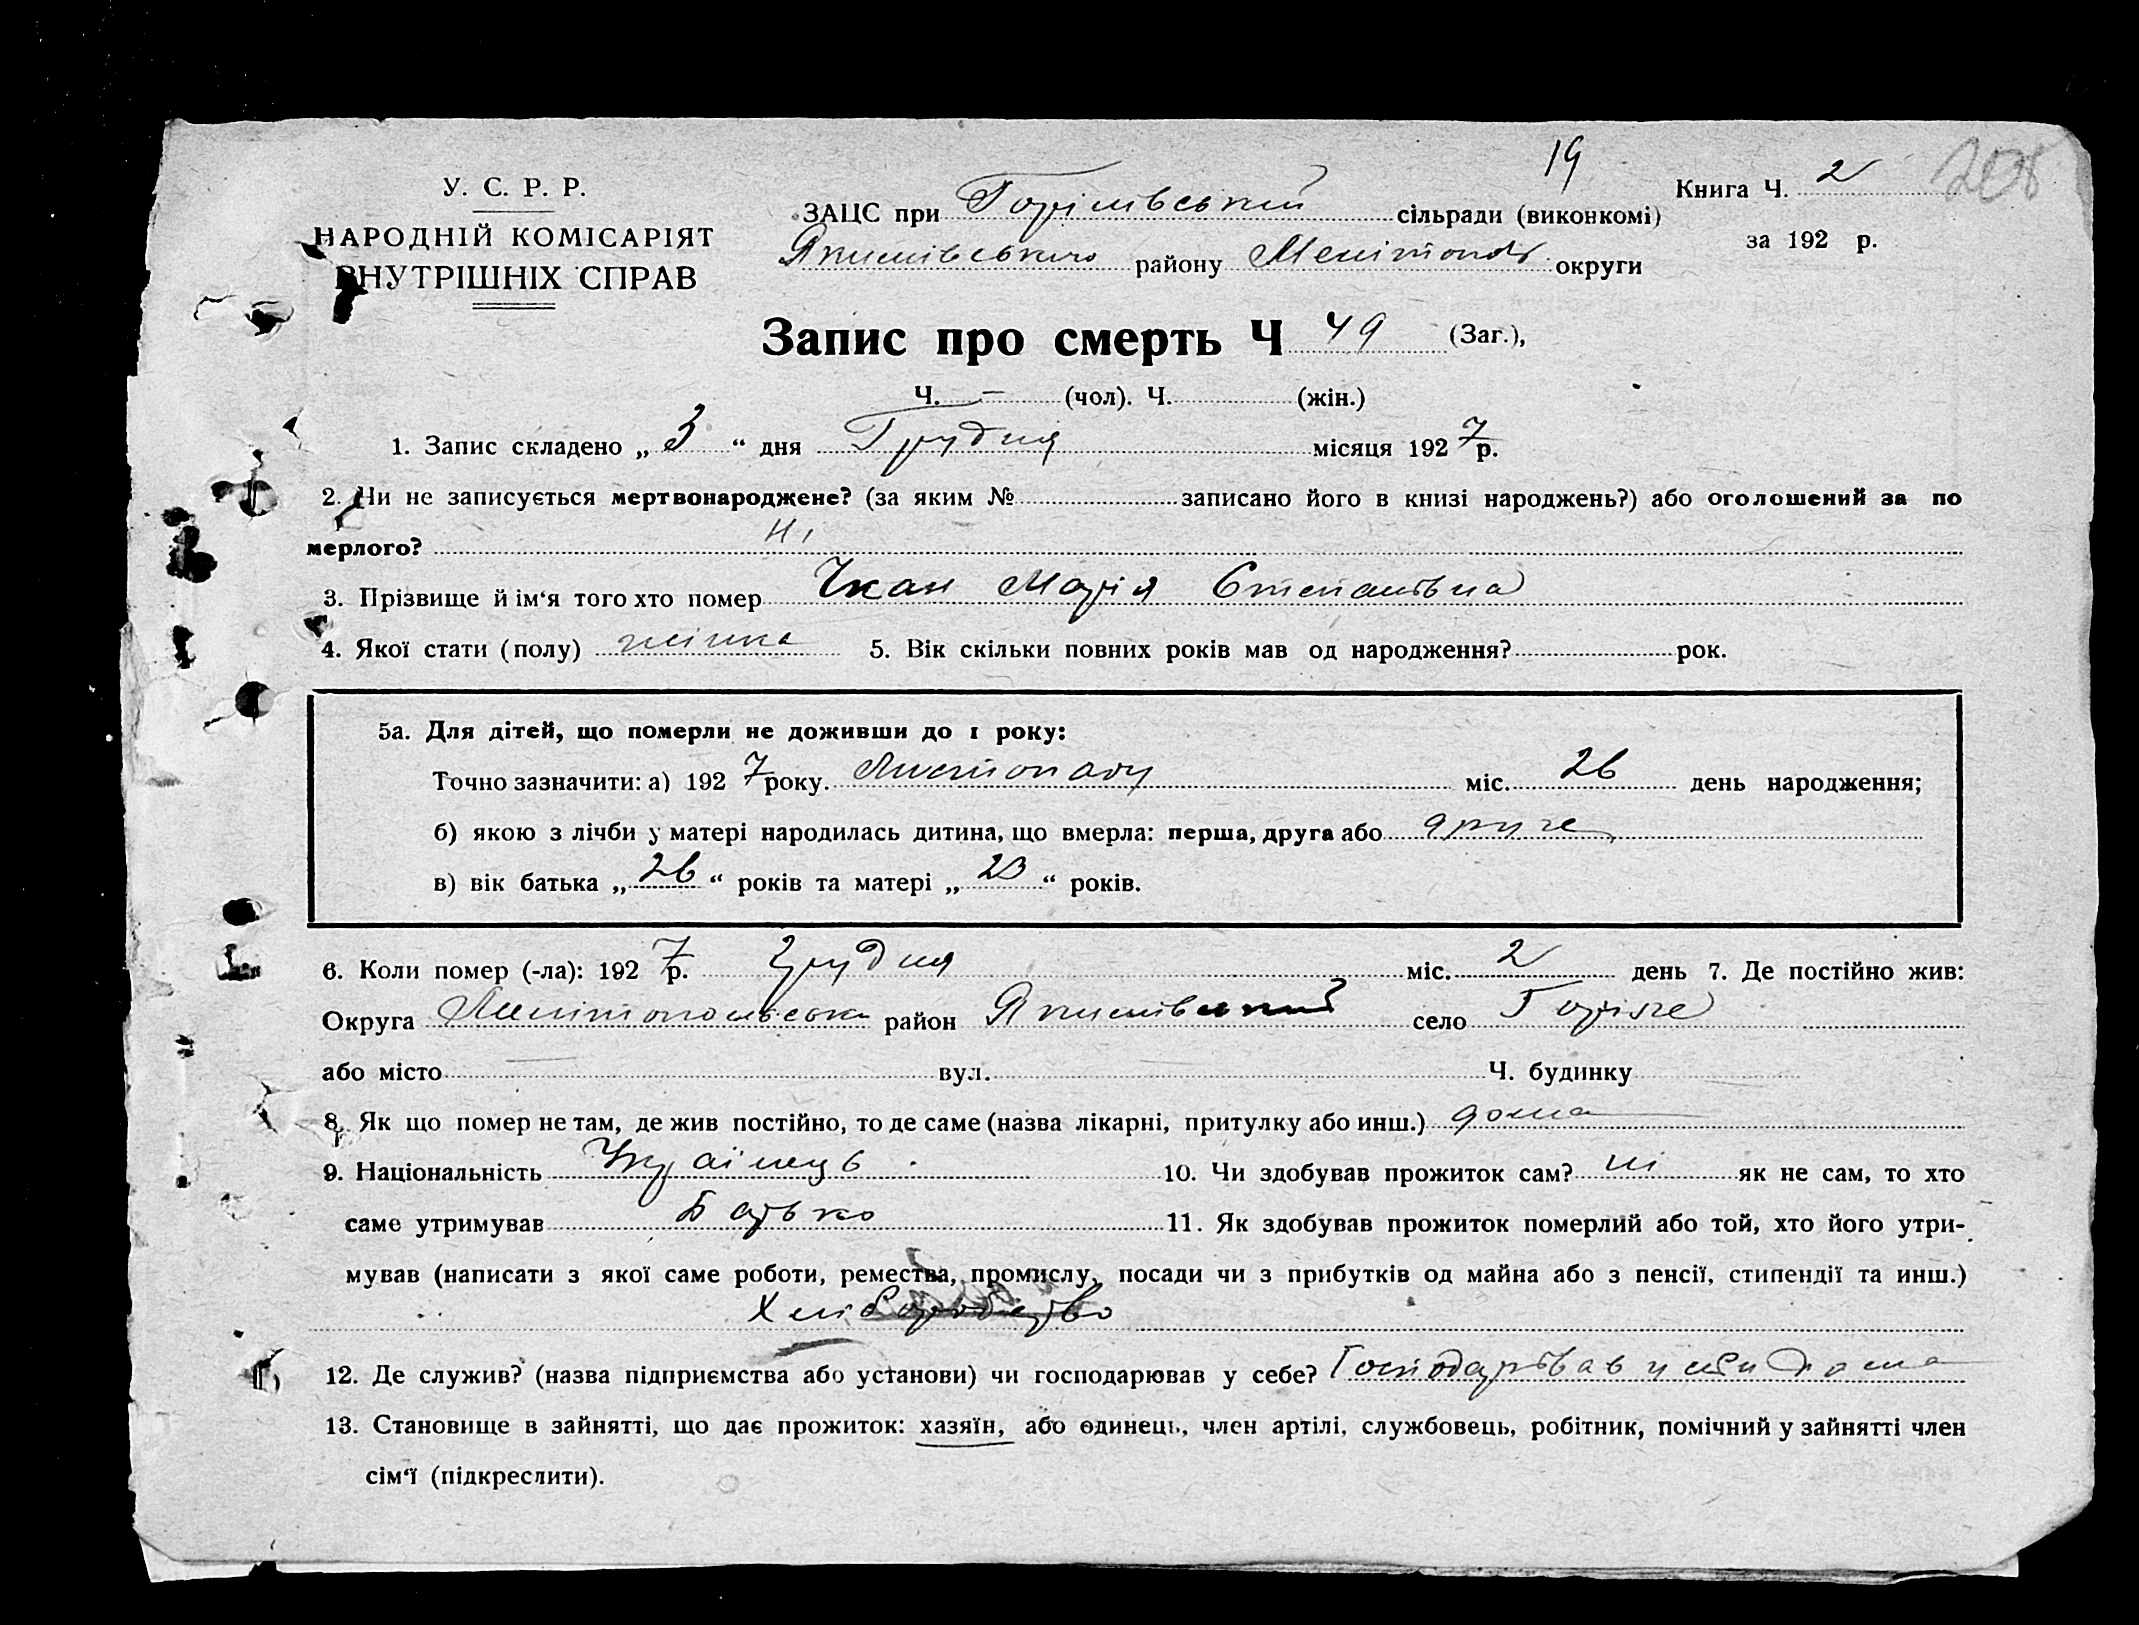 19
У. С. Р. Р.
НАРОДНІЙ КОМІСАРІЯТ
ВНУТРІШНІХ СПРАВ
ЗАЦС при Горілівський сільради (виконкомі)
Якимівського району Мелітопол. округи
Книга Ч. 2
за 192 р.
Запис про смерть Ч 49 (Заг.),
Ч. — (чол). Ч. (жін.)
1. Запис складено „ 3 “ дня Грудня місяця 1927 р.
2. Чи не записується мертвонароджене? (за яким № записано його в книзі народжень?) або оголошений за по
мерлого? Ні
3. Прізвище й ім‘я того хто помер Чкан Марія Степанівна
4. Якої стати (полу) жінка 5. Вік скільки повних років мав од народження? рок.
5а. Для дітей, що померли не доживши до 1 року:
Точно зазначити: а) 1927 року. Листопаду міс. 26 день народження;
б) якою з лічби у матері народилась дитина, що вмерла: перша, друга або друге
в) вік батька „ 26 “ років та матері „ 23 “ років.
6. Коли помер (-ла): 1927 р. грудня міс. 2 день 7. Де постійно жив:
Округа Мелітопольська район Якимівський село Горіле
або місто вул. Ч. будинку
8. Як що помер не там, де жив постійно, то де саме (назва лікарні, притулку або инш.) дома
9. Національність Українець 10. Чи здобував прожиток сам? ні як не сам, то хто
саме утримував Батько 11. Як здобував прожиток померлий або той, хто його утри-
мував (написати з якої саме роботи, ремества, промислу, посади чи з прибутків од майна або з пенсії, стипендії та инш.)
Хліборобство
12. Де служив? (назва підприємства або установи) чи господарював у себе? Господарював у себе дома
13. Становище в зайнятті, що дає прожиток: хазяїн, або одинець, член артілі, службовець, робітник, помічний у зайнятті член
сім‘ї (підкреслити).